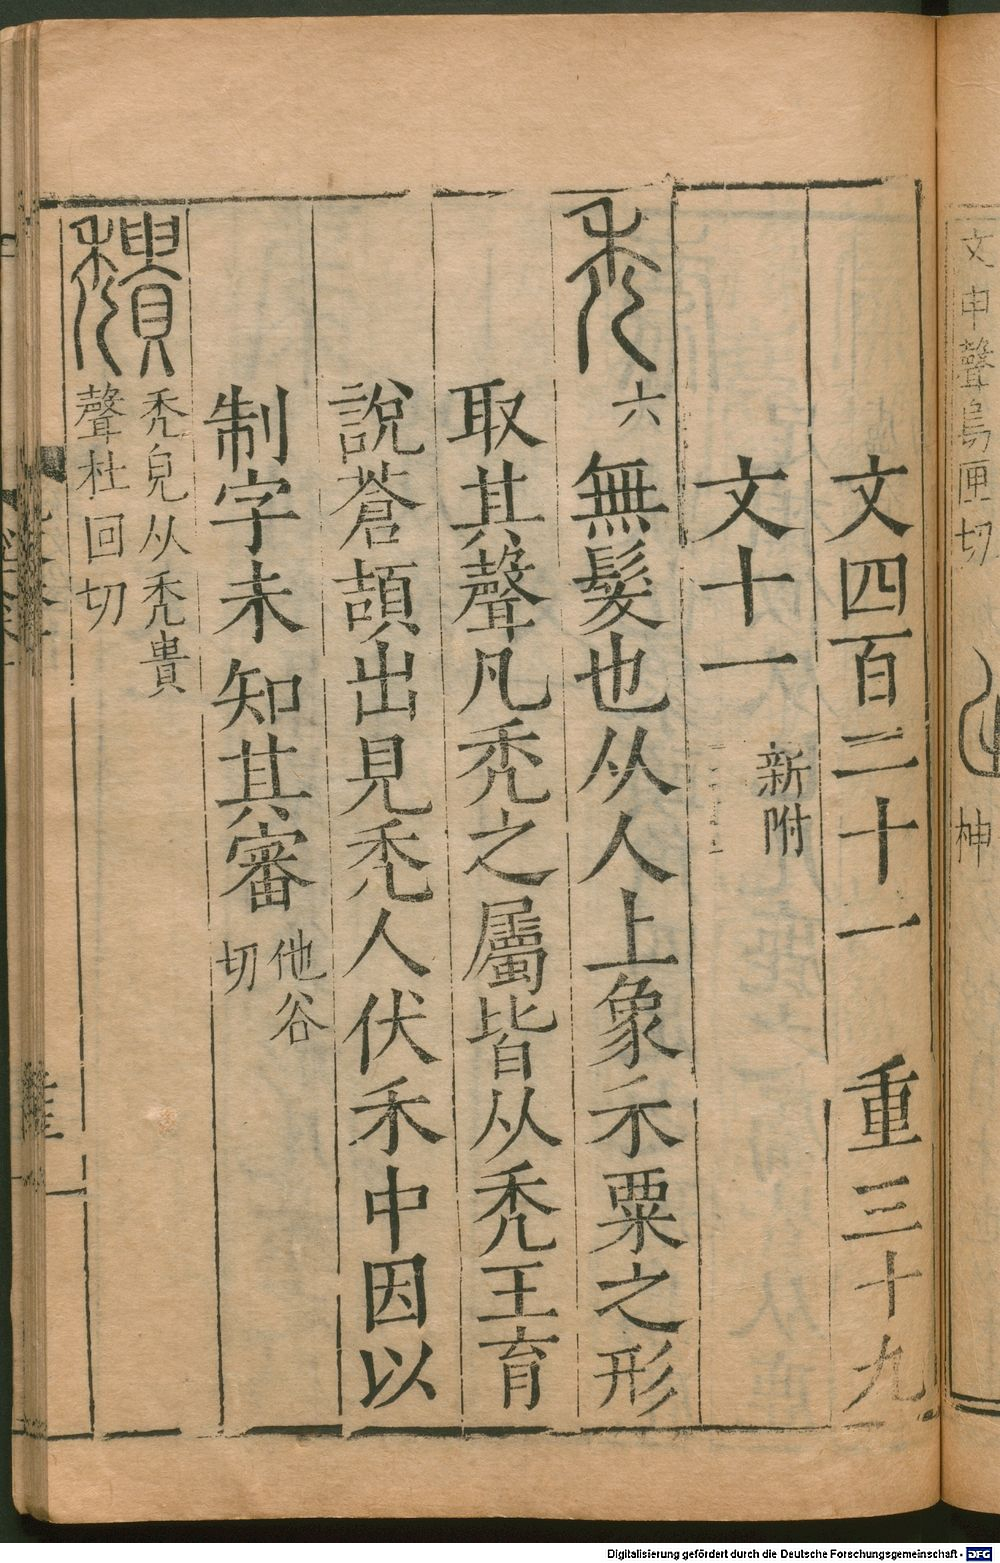 文申聲烏匣切
文四百二十一 重三十九
文十一 新附
禿 六 無髮也从人上象禾粟之形
取其聲凡禿之屬皆从禿王育
說蒼頡出見禿人伏禾中因以
制字未知其審 他谷
切
穨 禿皃从禿貴
聲杜回切
Digitalisierung gefördert durch die Deutsche Forschungsgemeinschaft - DFG